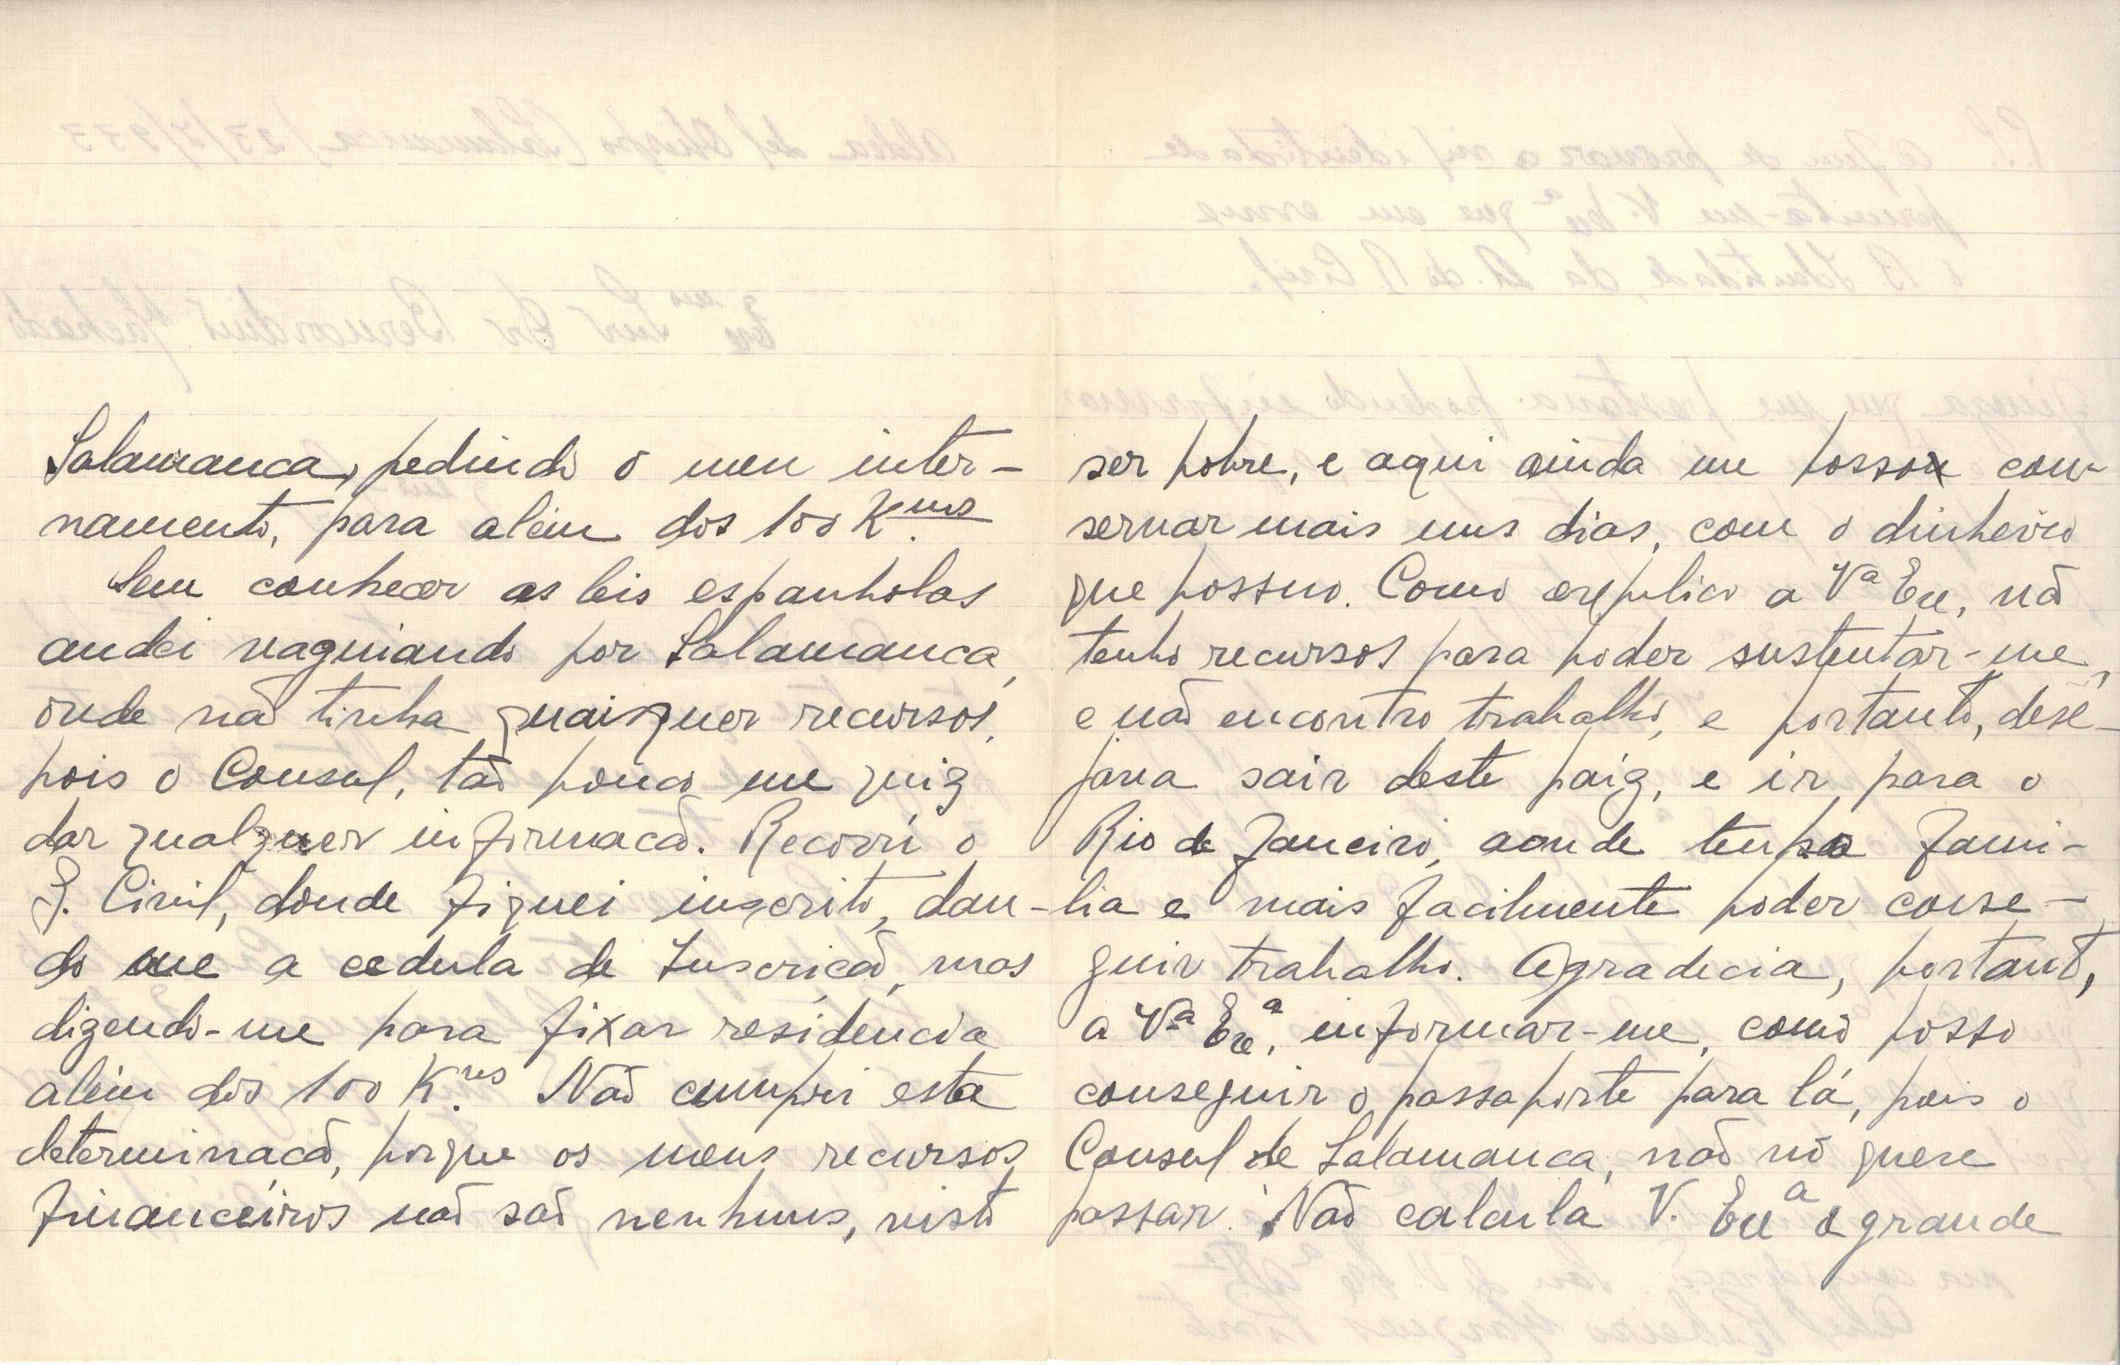 Salamanca, pedindo o meu inter-
namento, para além dos 100 K.ms
Sem conhecer as leis espanholas
andei vaguiando por Salamanca,
onde não tinha quaisquer recursos,
pois o Consul, tão pouco me quiz
dar qualquer informacão. Recorri o
G. Civil, donde fiquei inscrito, dan-
do me a cedula de Inscricão, mas
dizendo-me para fixar residencia
além dos 100 K.ms Não cumpri esta
determinacão, porque os meus recursos
financeiros não são nenhuns, visto
ser pobre, e aqui ainda me posso con-
servar mais uns dias, com o dinheiro
que possuo. Como explico a Vª Exe, não
tenho recursos para poder sustentar-me,
e não encontro trabalho, e portanto, dese-
java sair deste paiz, e ir para o
Rio de Janeiro, aonde tenho fami-
lia e mais facilmente poder conse-
guir trabalho. Agradecia, portanto,
a Vª Exeª, informar-me, como posso
conseguir o passaporte para lá, pois o
Consul de Salamanca, não no quere
passar. Não calcula V. Exeª a grande